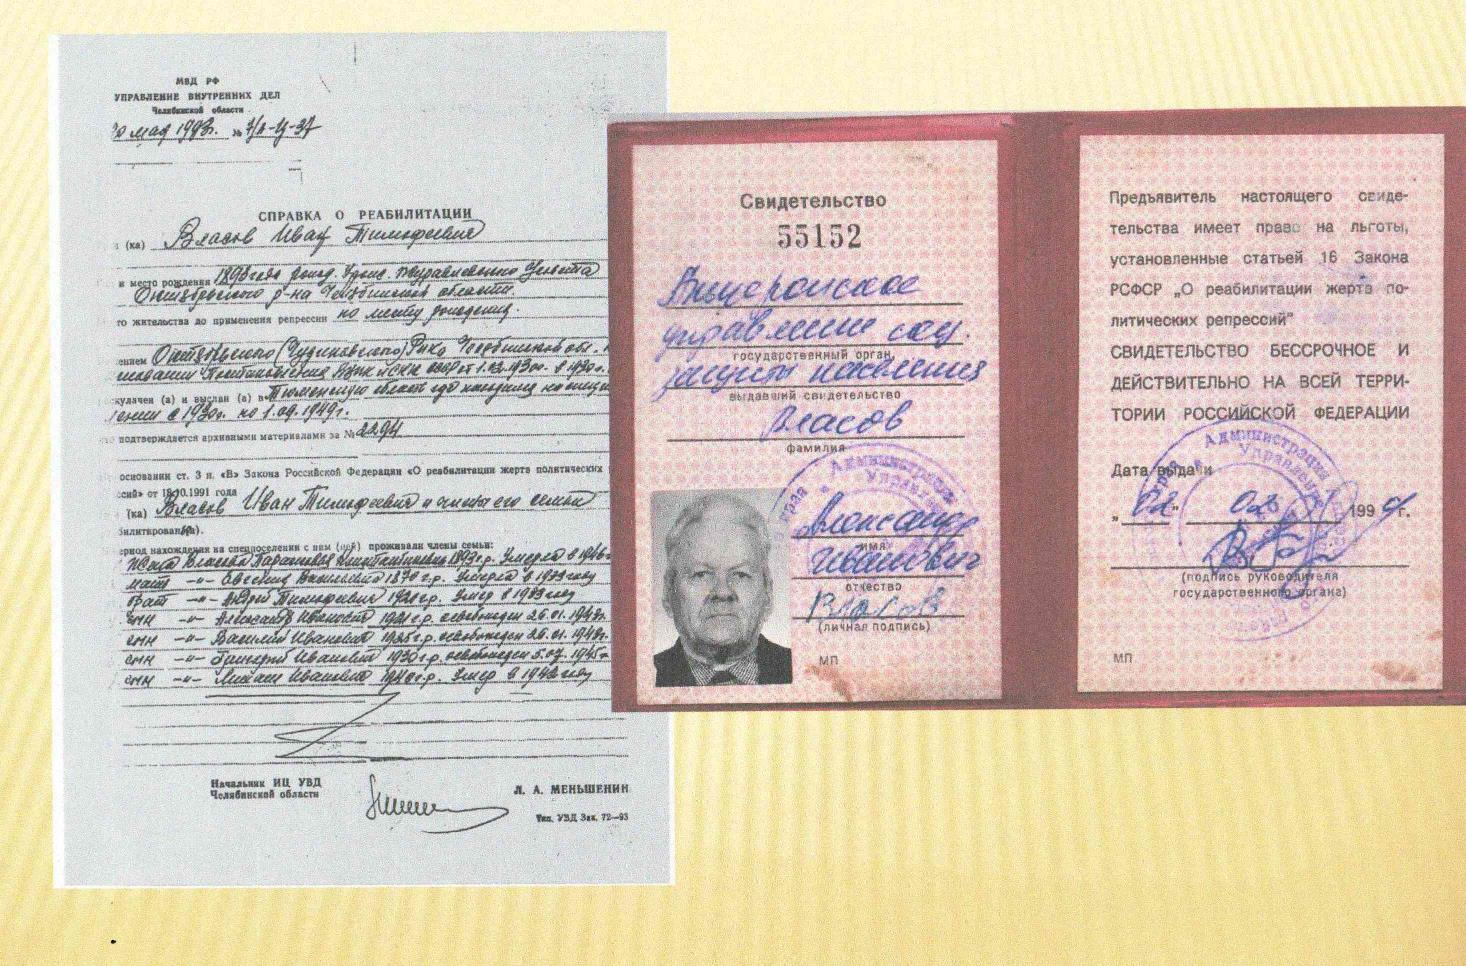 МВД РФ
УПРАВЛЕНИЕ ВНУТРЕННИХ ДЕЛ
Челябинской области
мая 1993г. №
СПРАВКА О РЕАБИЛИТАЦИИ
(ка) Власов Иван Тимофеевич
и место рождения 1898 года рожд.
Октябрьского р-на Челябинской области
го жительства до применения репрессии по месту рождения.
ением Октябрьского (Чудиновского) Рика Челябинской обл.
от 1.02.1930г. в 1930г.
кулачен (а) и выслан (а) в Тюменскую область где находился на спецпо
лении с 1930г. по 1.09.1949г.
подтверждается архивными материалами за № 2294
основании ст. 3 п. «В» Закона Российской Федерации «О реабилитации жертв политических
сий» от 18.10.1991 года
(ка) Власов Иван Тимофеевич и члены его семьи
билитирован(ы).
ериод нахождения на спецпоселении с ним (ней) проживали члены семьи:
жена Власова 1893 г.р. Умерла в
мать -"- Евгения Васильевна 1870 г.р. Умерла в 1933 году
брат -"- Андрей Тимофеевич 1921 г.р. Умер в 1933 году
сын -"- Александр Иванович 1921 г.р. освобожден 26.01.1948г.
сын -"- Василий Иванович 1925 г.р. освобожден 26.01.1948г.
сын -"- Григорий Иванович 1930 г.р. освобожден 5.07.1945г.
сын -"- Иванович г.р. Умер в 1942 году
Начальник ИЦ УВД
Челябинской области
Л. А. МЕНЬШЕНИН
Тип. УВД Зак. 72—93
Свидетельство
55152
управление соц.
государственный орган,
защиты населения
выдавший свидетельство
Власов
фамилия
Александр
имя
Иванович
отчество
Власов
(личная подпись)
МП
Предъявитель настоящего свиде-
тельства имеет право на льготы,
установленные статьей 16 Закона
РСФСР „О реабилитации жертв по-
литических репрессий"
СВИДЕТЕЛЬСТВО БЕССРОЧНОЕ И
ДЕЙСТВИТЕЛЬНО НА ВСЕЙ ТЕРРИ-
ТОРИИ РОССИЙСКОЙ ФЕДЕРАЦИИ
Дата выдачи
„02" 02 1994г.
(подпись руководителя
государственного органа)
МП